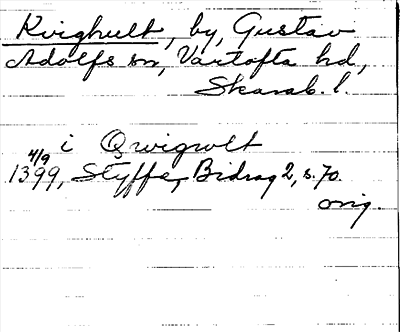 Kvighult, by, Gustav
Adolfs sn, Vartofta hd,
Skarab. l.
i Qwigwlt
4/9
1399, Styffe, Bidrag 2, s. 70.
orig.